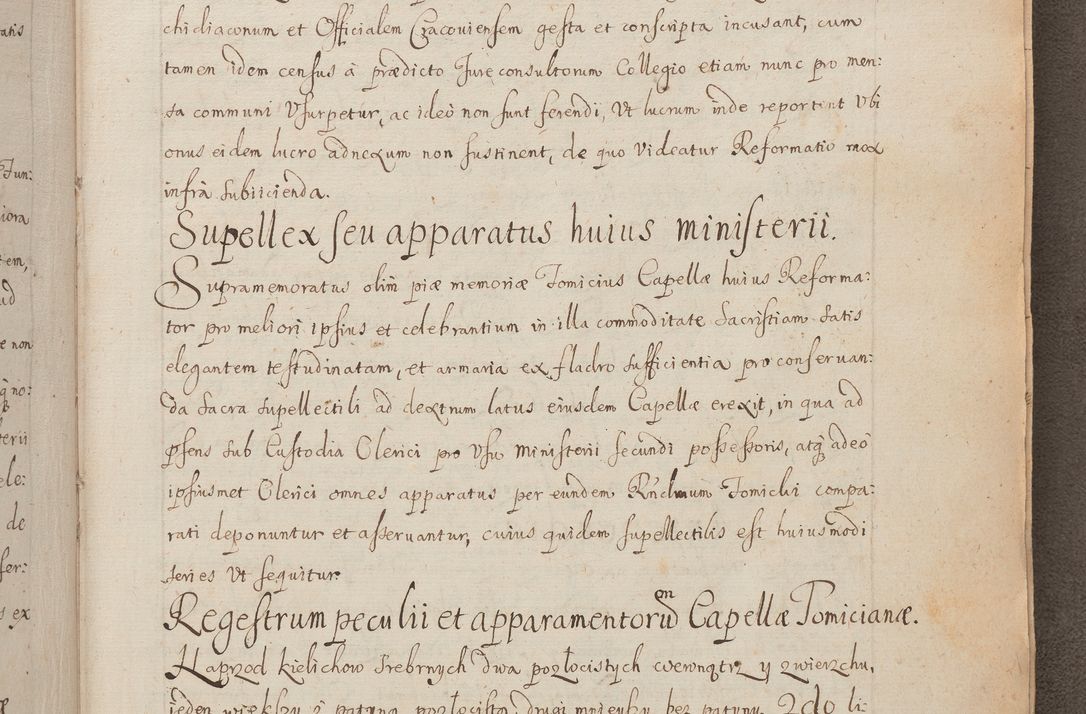 chidiaconum et Officialem Cracouiensem gesta et conscripta incusant, cum
tamen idem census à prædicto Jureconsultorum Collegio etiam nunc pro men:
sa communi Vsurpetur, ac ideò non sunt ferendi, Vt lucrum inde reportent Vbi
onus eidem lucro adnexum non sustinent, de quo Videatur Reformatio mox
infrà subiicienda.
Supellex seu apparatus huius ministerii.
Supramemoratus olim piæ memoriæ Tomicius Capellæ huius Reforma:
tor pro meliori ipsius et celebrantium in illa commoditate Sacristiam satis
elegantem testudinatam, et armaria ex fladro sufficientia pro conseruan:
da Sacra supellectili ad dextrum latus eiusdem Capellæ erexit, in qua ad
p̄sens sub Custodia Clerici pro Vsu ministerii secundi possessoris, atq́ adeò
ipsiusmet Clerici omnes apparatus per eundem Rńdmum Tomicki compa:
rati deponuntur et asseruantur, cuius quidem supellectilis est huiusmodi
series Vt sequitur.
Regestrum peculii et apparamentorum Capellæ Tomicianæ.
Naprzod kielichow srebrnych dwa pozłocistych wewnątrz y zwierzchu,
ieden większy z patyną pozłocistą, drugi mnieyszy bez patyny. 2do li:
atis
Fun:
iora
tem,
ud
e non
q́ no:
terii
ele:
de
fer:
s ex